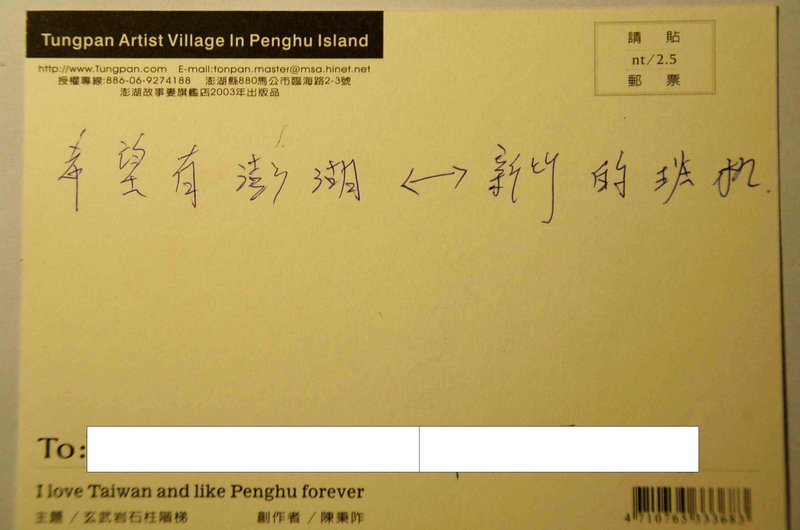 Tungpan Artist Village In Penghu Island
http://www.Tungpan.com E-mail:tonpan.master@msa.hinet.net
授權專線:886-06-9274188 澎湖縣880馬公市臨海路2-3號
澎湖故事妻旗艦店2003年出版品
請貼
nt/2.5
郵票
希望有澎湖 ←→ 新竹的班机.
To:
I love Taiwan and like Penghu forever
主題／玄武岩石柱階梯 創作者／陳秉阼
4 710765 333683